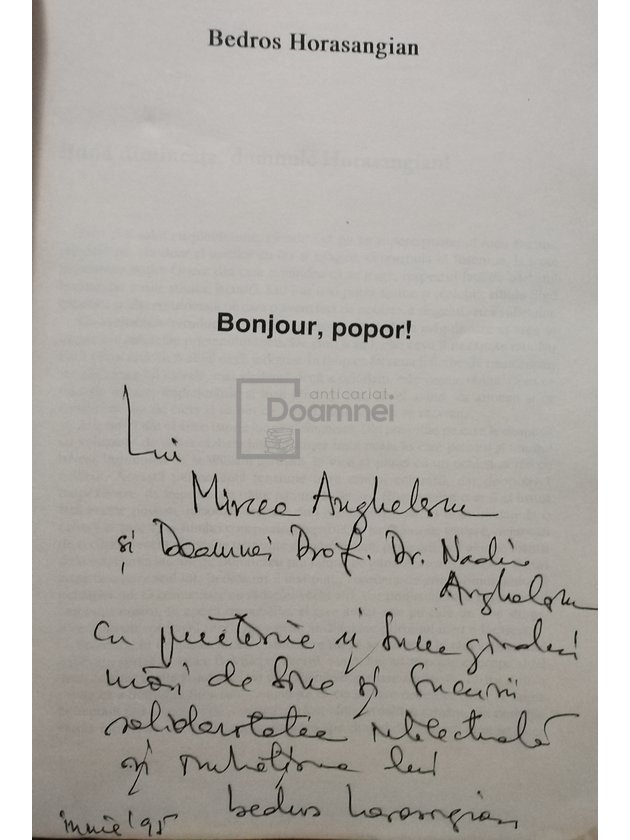 Bedros Horasangian
Bonjour, popor!
anticariat
Doamnei
Lui
Mircea Anghelescu
și Doamnei Prof. Dr. Nadia
Anghelescu
cu prietenie și bune gânduri
mări de bine și bucurii
solidaritatea intelectuală
și lui
bedros horasangian
iunie '95